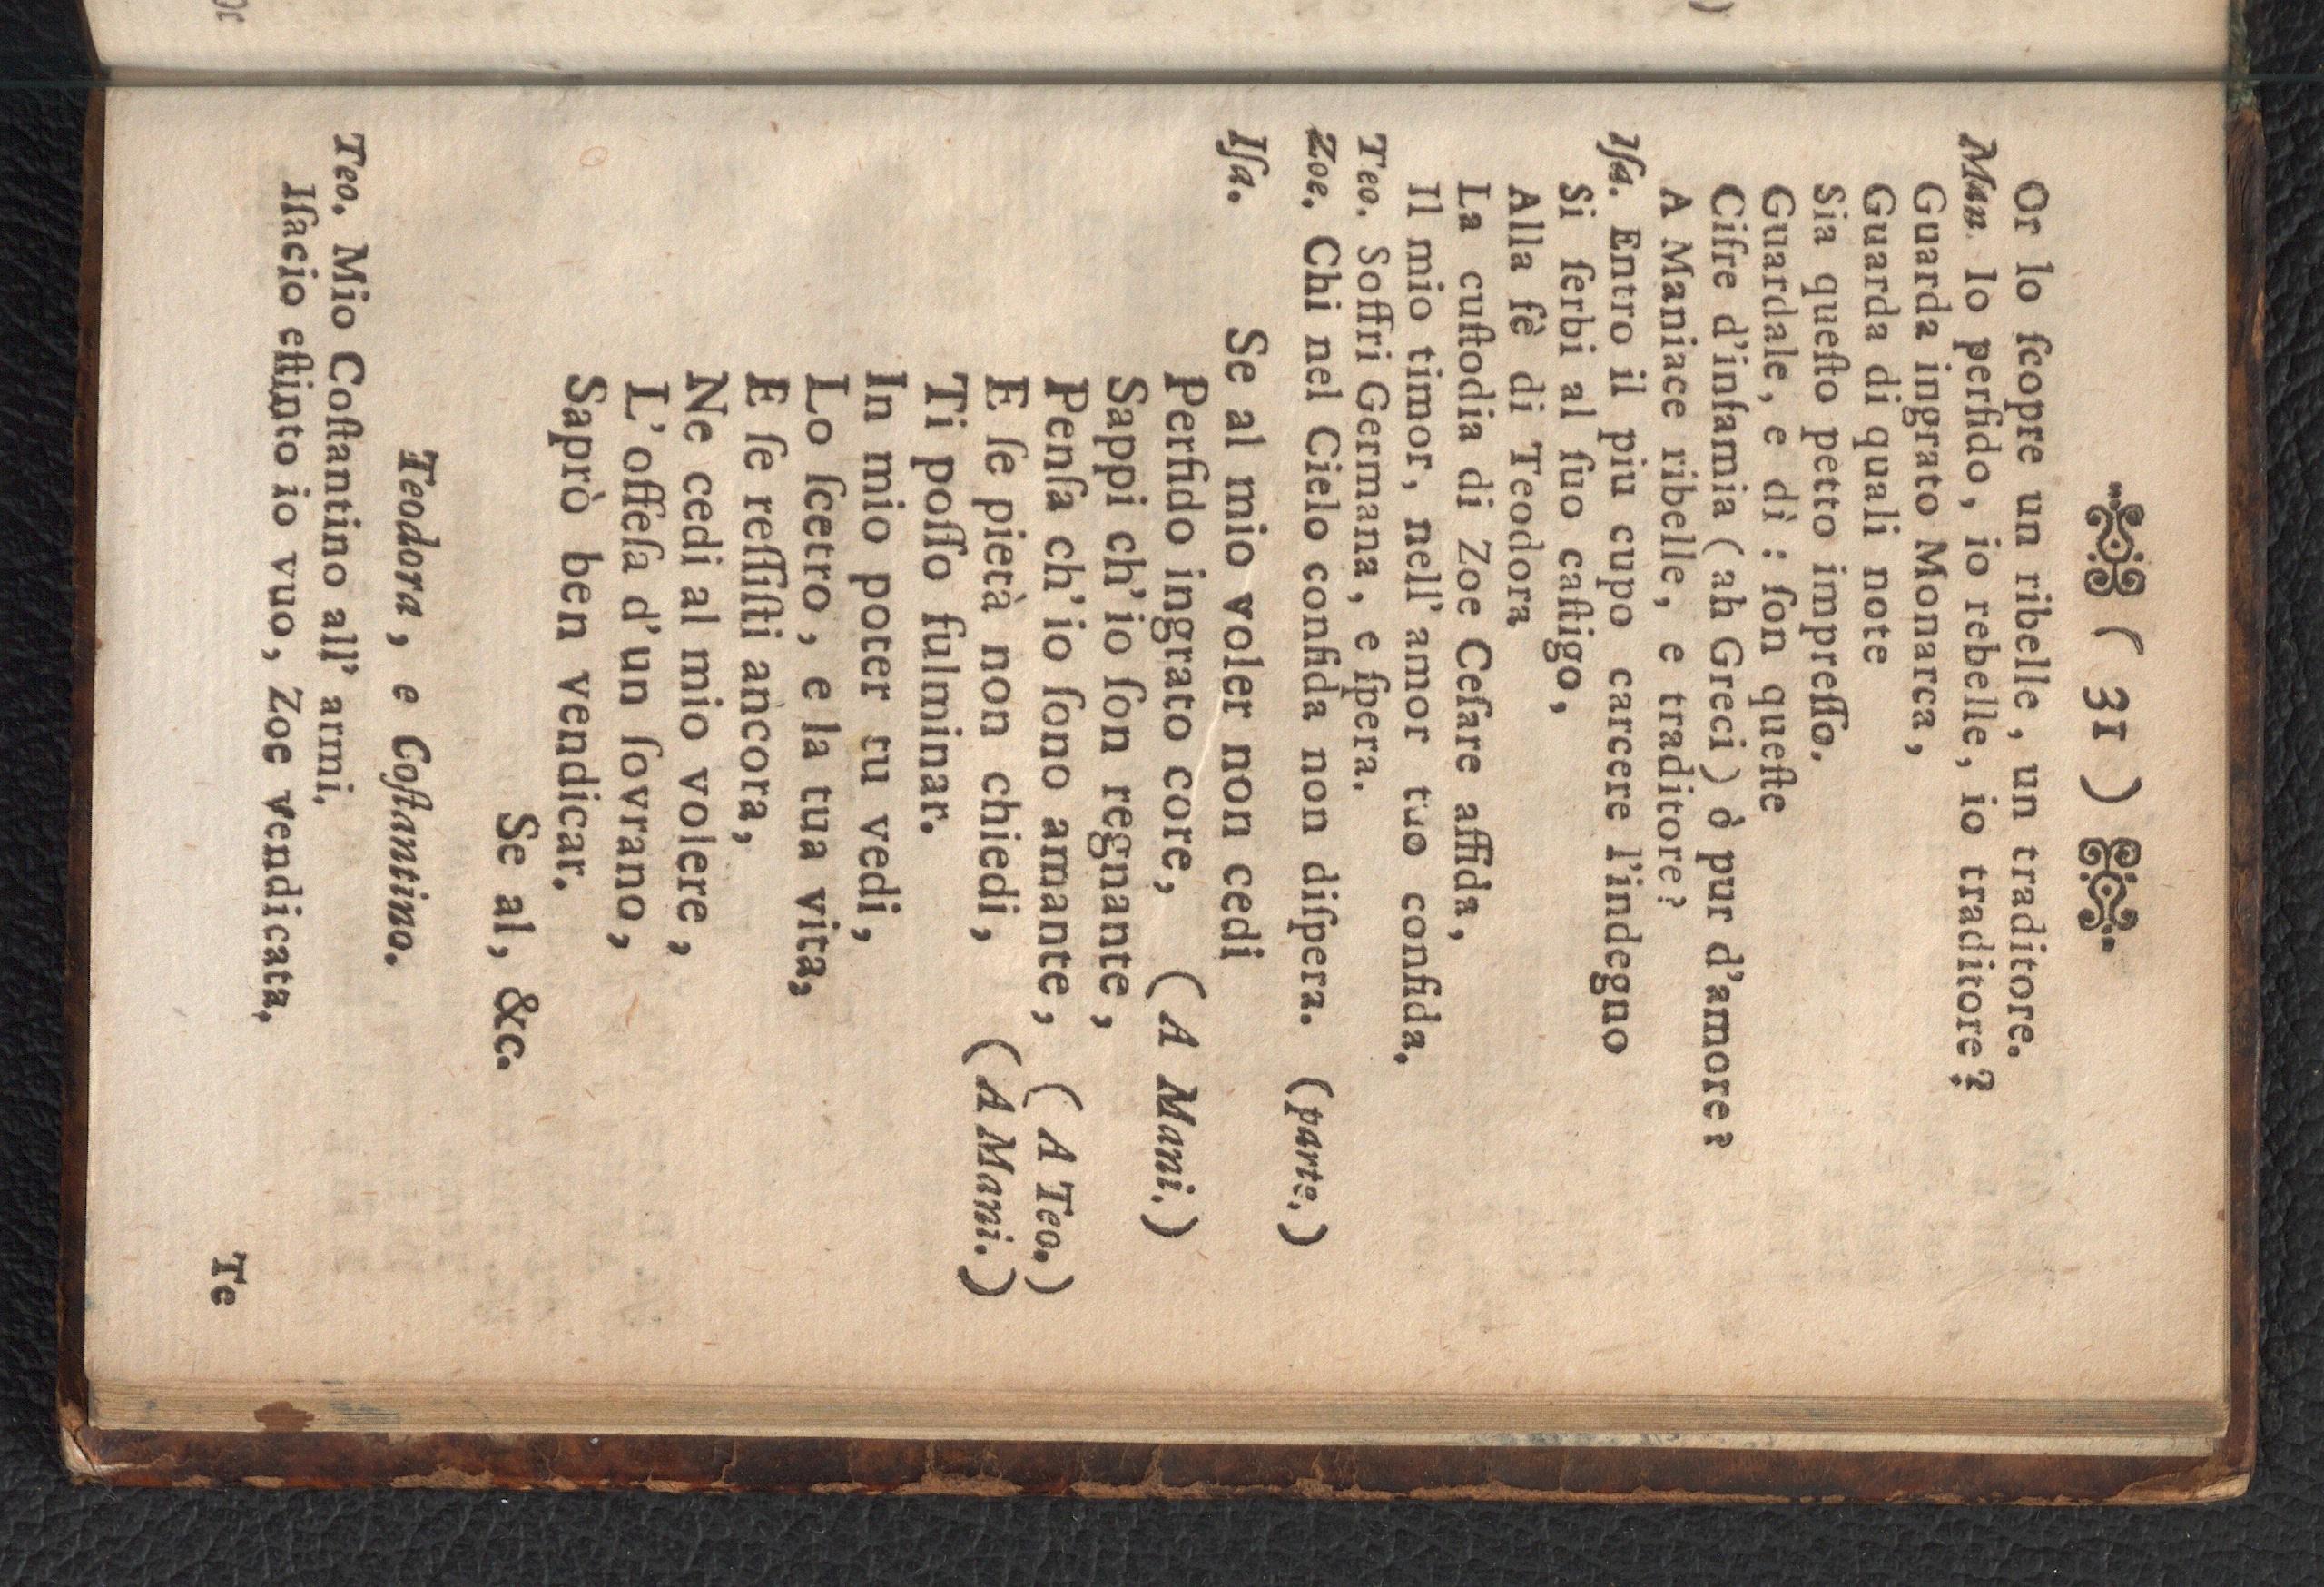 ( 31 )
Or lo ſcopre un ribelle, un traditore.
Man. Io perfido, io rebelle, io traditore?
Guarda ingrato Monarca,
Guarda di quali note
Sia queſto petto impreſſo.
Guardale, e dì: ſon queſte
Cifre d'infamia (ah Greci) ò pur d'amore?
A Maniace ribelle, e traditore?
Iſa. Entro il piu cupo carcere l'indegno
Si ſerbi al ſuo caſtigo,
Alla fè di Teodora
La cuſtodia di Zoe Ceſare affida,
Il mio timor, nell' amor tuo confida,
Teo. Soffri Germana, e ſpera.
Zoe. Chi nel Cielo confida non diſpera. (parte.)
Iſa. Se al mio voler non cedi
Perfido ingrato core, (A Mani.)
Sappi ch'io ſon regnante,
Penſa ch'io ſono amante, (A Teo.)
E ſe pietà non chiedi, (A Mani.)
Ti poſſo fulminar.
In mio poter tu vedi,
Lo ſcetro, e la tua vita,
E ſe reſſiſti ancora,
Ne cedi al mio volere,
L'offeſa d'un ſovrano,
Saprò ben vendicar.
Se al, &c.
Teodora, e Coſtantino.
Teo. Mio Coſtantino all' armi,
Iſacio eſtinto io vuo, Zoe vendicata,
Te